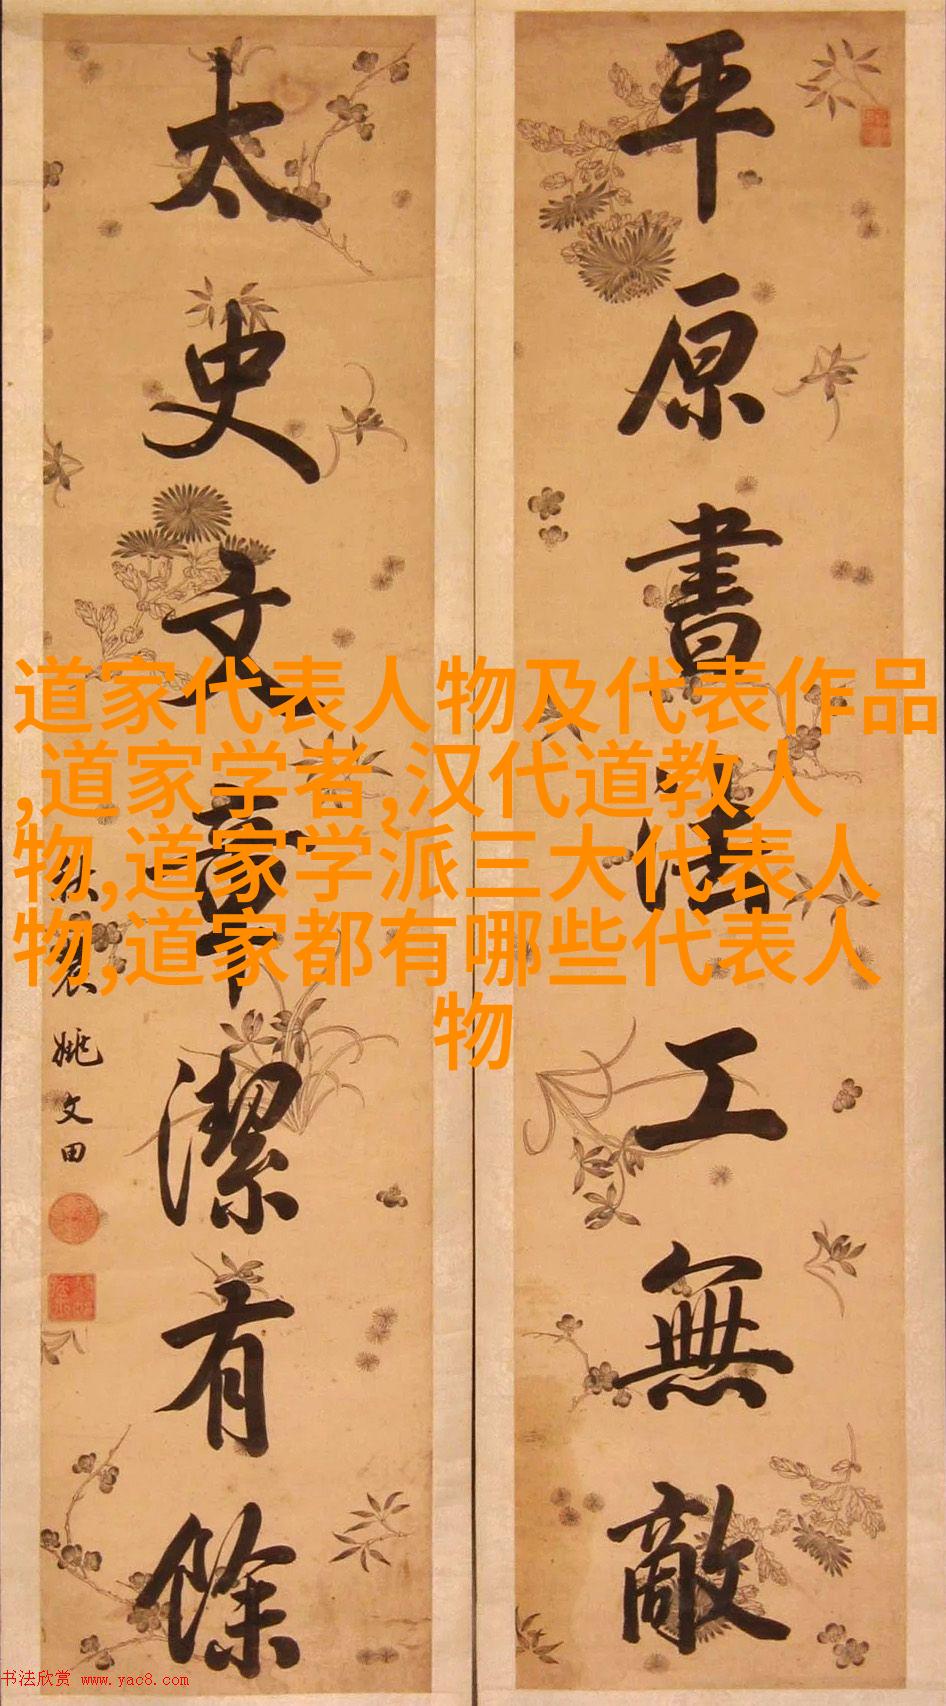 平原書法工無敵
太史文章潔有餘
秋農姚文田
道家代表人物及代表作品
,道家学者,汉代道教人
物,道家学派三大代表人
物,道家都有哪些代表人
物
书法欣赏 www.yac8.com